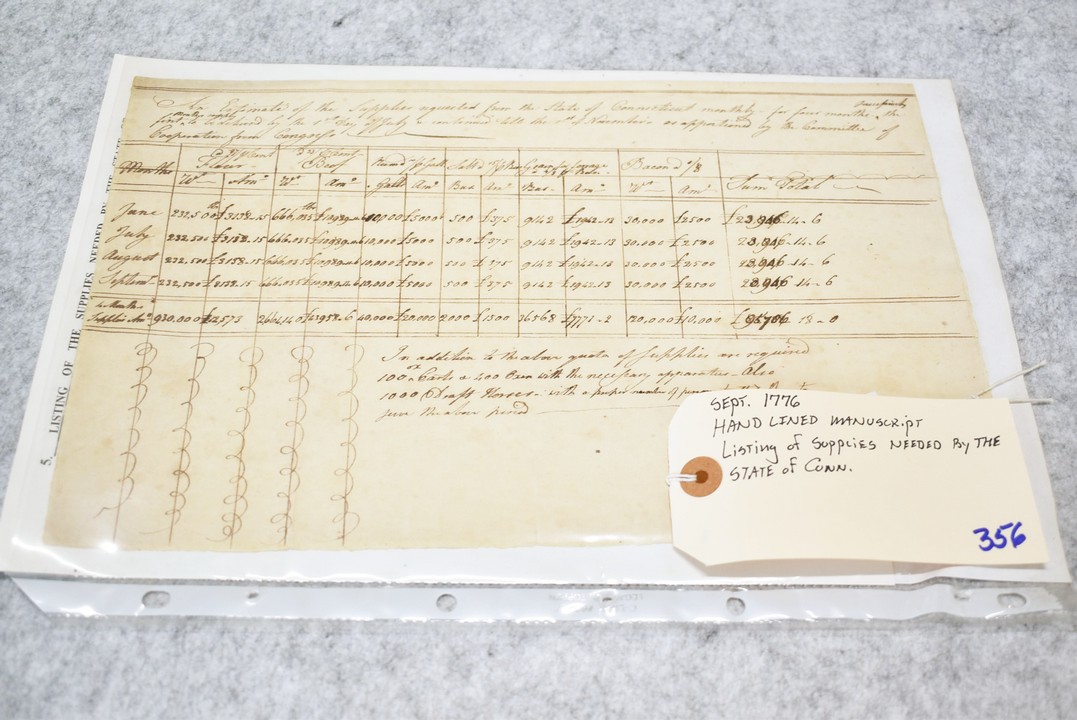 An Estimate of the Supplies requested from the State of Connecticut monthly for four months, the
first to be delivered by the 1st day of July & continued till the 1st of November as apportioned by the Committee of
Cooperation from Congress
Months Flour Beef Rum Salt Bacon a /8 Sum Total
Wt Amt Wt Amt Galls Amt Bus Amt Bus Amt Wt Amt
June 232,500 £3138.15 666,035 10,000 £5000 500 £375 9142 £1942-13 30,000 £2500 £23,946-14-6
July 232,500 £3138.15 666,035 10,000 £5000 500 £375 9142 £1942-13 30,000 £2500 23,946-14-6
August 232,500 £3138.15 666,035 10,000 £5000 500 £375 9142 £1942-13 30,000 £2500 23,946-14-6
Septemr 232,500 £3138.15 666,035 10,000 £5000 500 £375 9142 £1942-13 30,000 £2500 23,946-14-6
4 Months
Supplies Amt 930,000 2664140 40,000 £20,000 2000 £1500 36568 £7771-2 120,000 £10,000 18-0
In addition to the above quota of Supplies are required
100 Ox Carts & 400 Oxen with the necessary apparatus - Also
1000 Draft Horses - with a proper number of
serve the above period
5. LISTING OF THE SUPPLIES NEEDED BY THE STATE
SEPT. 1776
HAND LINED MANUSCRIPT
Listing of Supplies NEEDED By THE
STATE of CONN.
356